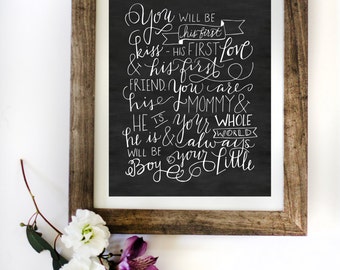 You WILL BE
his first
kiss - HIS FIRST Love
& his first
FRIEND. You are
his MOMMY &
HE IS your WHOLE
WORLD
he is & always
WILL BE your
Boy Little